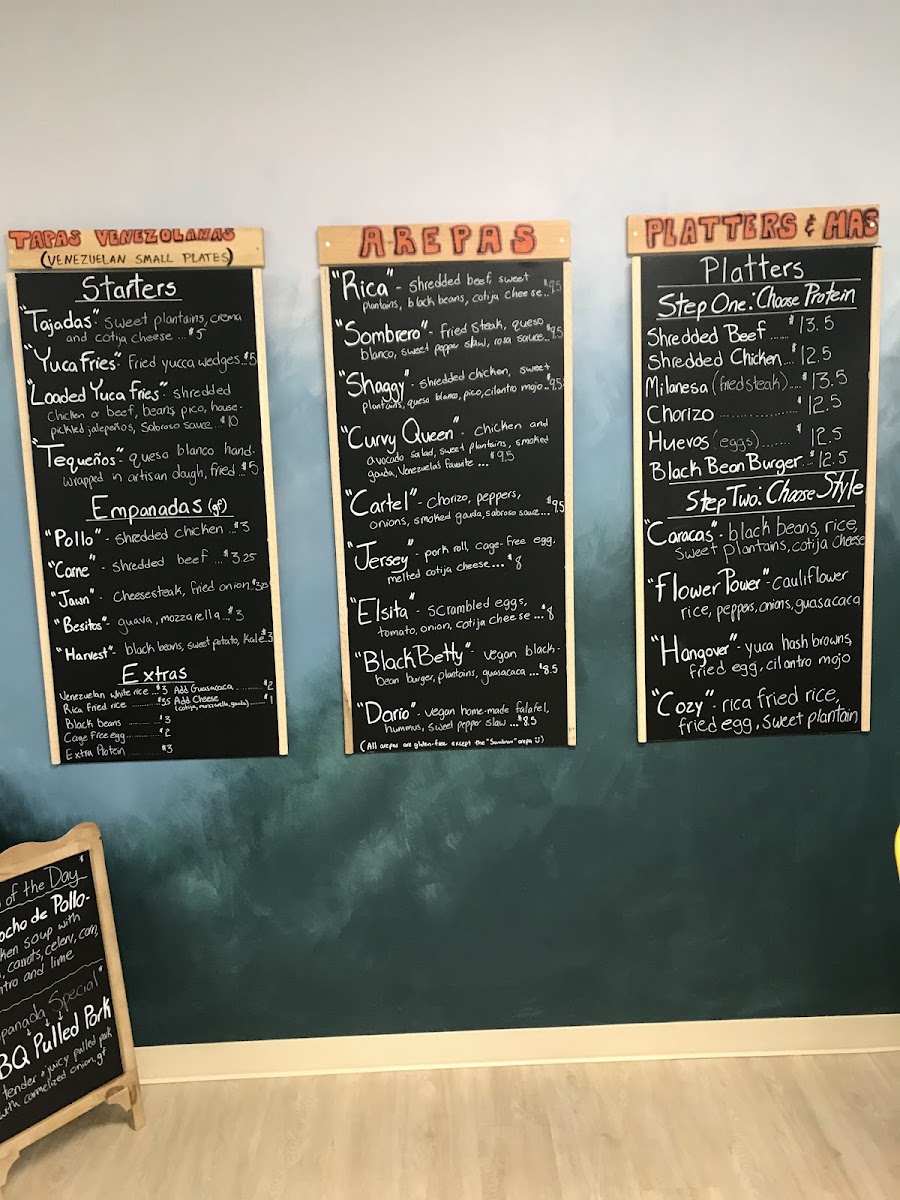 TAPAS VENEZOLANAS
(VENEZUELAN SMALL PLATES)
Starters
"Tajadas"- sweet plantains, crema
and cotija cheese ...$5
"Yuca Fries"- Fried yucca wedges..$5
"Loaded Yuca Fries"- shredded
chicken or beef, beans, pico, house-
pickled jalepeños, Sabroso Sauce...$10
"Tequeños"- queso blanco hand-
wrapped in artisan dough, fried...$5
Empanadas (gf)
"Pollo"- shredded chicken ...$3
"Carne" - shredded beef ...$3.25
"Jawn" - Cheesesteak, fried onion..$3.25
"Besitos"- guava, mozzarella...$3
"Harvest"- black beans, sweet potato, kale.$3
Extras
Venezuelan white rice ...$3 Add Guasacaca ..........$2
Rica Fried rice ..........$3.5 Add Cheese ..........$1
(cotija, mozzarella, gouda)
Black beans ..........$3
Cage Free egg ..........$2
Extra Protein ..........$3
AREPAS
"Rica"- shredded beef, sweet
plantains, black beans, cotija cheese..$9.5
"Sombrero"- fried steak, queso
blanco, sweet pepper slaw, rosa sauce..$9.5
"Shaggy"- shredded chicken, sweet
plantains, queso blanco, pico, cilantro mojo..$9.5
"Curvy Queen"- chicken and
avocado salad, sweet plantains, smoked
gouda, Venezuela's favorite ...$9.5
"Cartel"- chorizo, peppers,
onions, smoked gouda, sabroso sauce...$9.5
"Jersey"- pork roll, cage-free egg,
melted cotija cheese...$8
"Elsita"- scrambled eggs,
tomato, onion, cotija cheese...$8
"Black Betty"- vegan black-
bean burger, plantains, guasacaca ...$8.5
"Dario"- vegan home-made falafel,
hummus, sweet pepper slaw ...$8.5
(All arepas are gluten-free except the "Sombrero" arepa)
PLATTERS & MAS
Platters
Step One: Choose Protein
Shredded Beef ....$13.5
Shredded Chicken...$12.5
Milanesa (fried steak)....$13.5
Chorizo ..............$12.5
Huevos (eggs).......$12.5
Black Bean Burger..$12.5
Step Two: Choose Style
"Caracas"- black beans, rice,
sweet plantains, cotija cheese
"Flower Power"- cauliflower
rice, peppers, onions, guasacaca
"Hangover"- yuca hash browns,
fried egg, cilantro mojo
"Cozy"- rica fried rice,
fried egg, sweet plantain
of the Day
ocho de Pollo-
ken soup with
, carrots, celery, corn,
ntro and lime
panada Special*
BQ Pulled Pork
tender & juicy pulled pork
with carmelized onion, gf